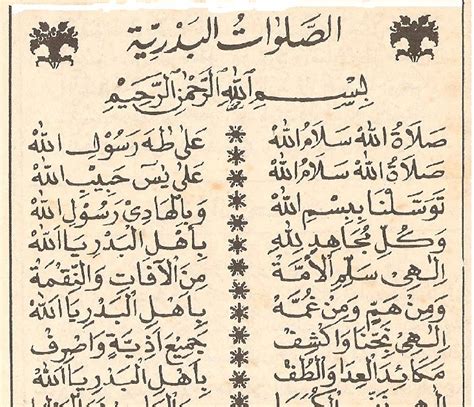 الصَّلَوَاتُ البَدْرِيَّة
بِسْمِ اللهِ الرَّحْمٰنِ الرَّحِيْمِ
صَلَاةُ اللهْ سَلَامُ اللهْ * عَلَى طٰهَ رَسُوْلِ اللهْ
صَلَاةُ اللهْ سَلَامُ اللهْ * عَلَى يٰسٓ حَبِيْبِ اللهْ
تَوَسَّلْنَا بِبِسْمِ اللهْ * وَبِالْهَادِيْ رَسُوْلِ اللهْ
وَكُلِّ مُجَاهِدٍ لِلّٰهِ * بِأَهْلِ الْبَدْرِ يَا اَللهْ
إِلٰهِيْ سَلِّمِ الْأُمَّةْ * مِنَ الْآفَاتِ وَالنِّقْمَةْ
وَمِنْ هَمٍّ وَمِنْ غُمَّةْ * بِأَهْلِ الْبَدْرِ يَا اَللهْ
إِلٰهِيْ نَجِّنَا وَاكْشِفْ * جَمِيْعَ أَذِيَّةٍ وَاصْرِفْ
مَكَائِدَ الْعِدَا وَالْطُفْ * بِأَهْلِ الْبَدْرِ يَا اَللهْ